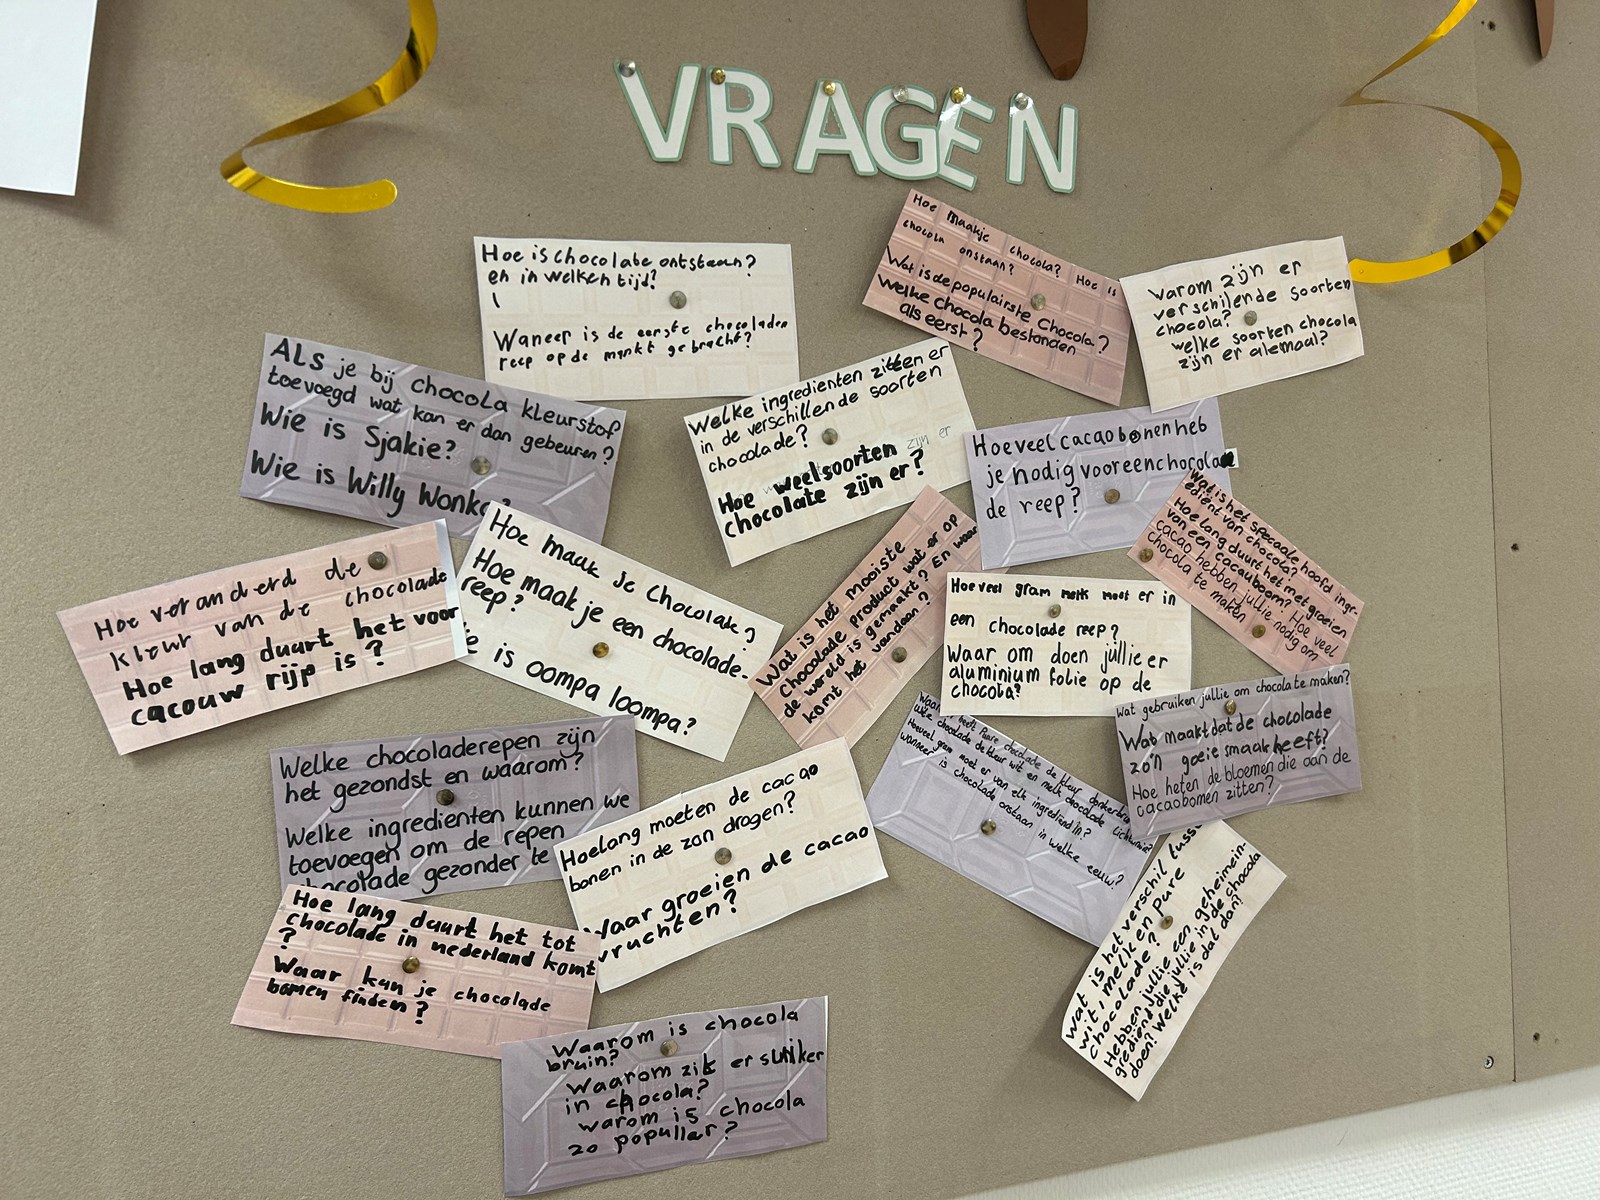 VRAGEN
Hoe is chocolate ontstaan?
en in welken tijd?
Waneer is de eerste chocoladen
reep op de markt gebracht?
Hoe maakje chocola? Hoe is
chocola onstaan?
Wat is de populairste Chocola?
Welke chocola bestonden
als eerst?
Warom zijn er
verschilende soorten
chocola?
welke soorten chocola
zijn er alemaal?
ALS je bij chocola kleurstof
toevoegd wat kan er dan gebeuren?
Wie is Sjakie?
Wie is Willy Wonka?
Welke ingredienten zitten er
in de verschillende soorten
chocolade?
zijn er
Hoe weelsoorten
chocolate zijn er?
Hoeveel cacaobonen heb
je nodig vooreenchocola
de reep?
Wat is het speciaale hoofd ingr-
ediënt van chocola?
Hoe lang duurt het met groeien
van een cacauboom? Hoe veel
cacao hebben jullie nodig om
chocola te maken
Hoe veranderd de
kleur van de chocolade
Hoe lang duurt het voor
cacouw rijp is?
Hoe maak je chocolate?
Hoe maak je een chocolade-
reep?
is oompa loompa?
Wat is het mooiste
chocolade product wat er op
de wereld is gemaakt? En waar
komt het vandaan?
Hoeveel gram melk moet er in
een chocolade reep?
Waar om doen jullie er
aluminium folie op de
chocola?
Wat gebruiken jullie om chocola te maken?
Wat maakt dat de chocolade
zo'n goeie smaak heeft?
Hoe heten de bloemen die aan de
cacaobomen zitten?
Welke chocoladerepen zijn
het gezondst en waarom?
Welke ingredienten kunnen we
toevoegen om de repen
chocolade gezonder te
Hoelang moeten de cacao
bonen in de zon drogen?
Waar groeien de cacao
vruchten?
heeft Puure chocolade de kleur donkerbruin
witte chocolade de kleur wit en melk chocolade lichtbruin?
Hoeveel gram moet er van elk ingrediend in?
wanneer is chocolade onstaan in welke eeuw?
wat is het verschil tusse
wit, melk en pure
chocolade?
Hebben jullie een geheimein-
grediend die jullie in de chocola
doen? Welke is dat dan?
Hoe lang duurt het tot
chocolade in nederland komt
?
Waar kun je chocolade
bomen finden?
Waarom is chocola
bruin?
Waarom zit er suiker
in chocola?
warom is chocola
zo populiar?